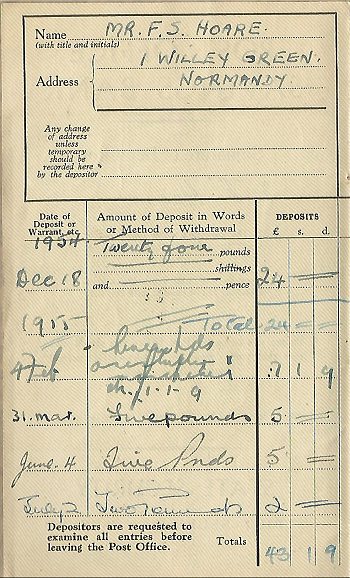 Name MR. F. S. HOARE.
(with title and initials)
Address 1 WILLEY GREEN.
NORMANDY
Any change
of address
unless
temporary
should be
recorded here
by the depositor
Date of
Deposit or
Warrant, etc.
Amount of Deposit in Words
or Method of Withdrawal
DEPOSITS
£ s. d.
1954 Twenty four pounds
Dec 18 shillings 24
and pence
1955 Total 24
4 Feb 7 1 9
1-1-9
31. Mar. Five pounds 5
June. 4 Five Pnds 5
July 2 Two Pounds 2
Depositors are requested to
examine all entries before
leaving the Post Office.
Totals 43 1 9